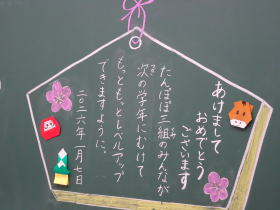 あけまして
おめでとう
ございます
たんぽぽ三組のみんなが
次の学年にむけて
もっともっとレベルアップ
できますように。
二〇二六年一月七日